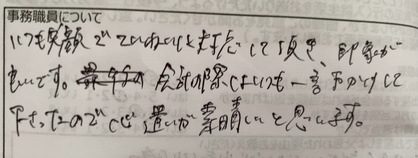 事務職員について
いつも笑顔でていねいに対応して頂き、印象が
良いです。会計の際にはいつも一言声かけして
下さったので心遣いが素晴しいと思います。